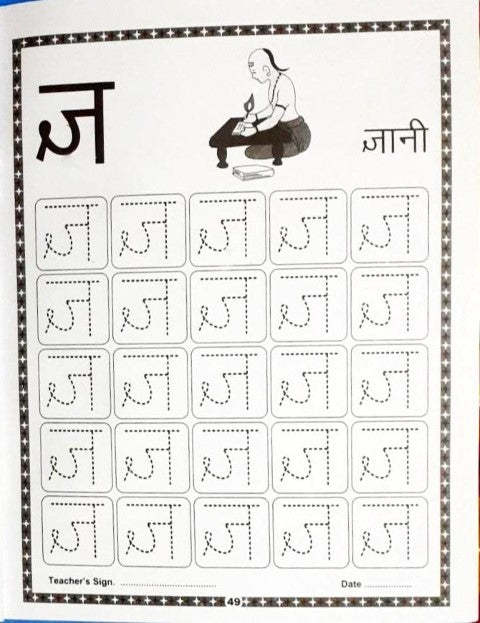 ज्ञ
ज्ञानी
ज्ञ ज्ञ ज्ञ ज्ञ ज्ञ
ज्ञ ज्ञ ज्ञ ज्ञ ज्ञ
ज्ञ ज्ञ ज्ञ ज्ञ ज्ञ
ज्ञ ज्ञ ज्ञ ज्ञ ज्ञ
ज्ञ ज्ञ ज्ञ ज्ञ ज्ञ
Teacher's Sign. .............................. Date ...............
49